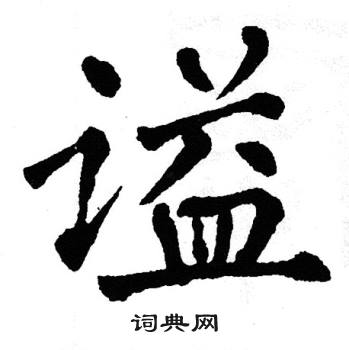 谥
词典网